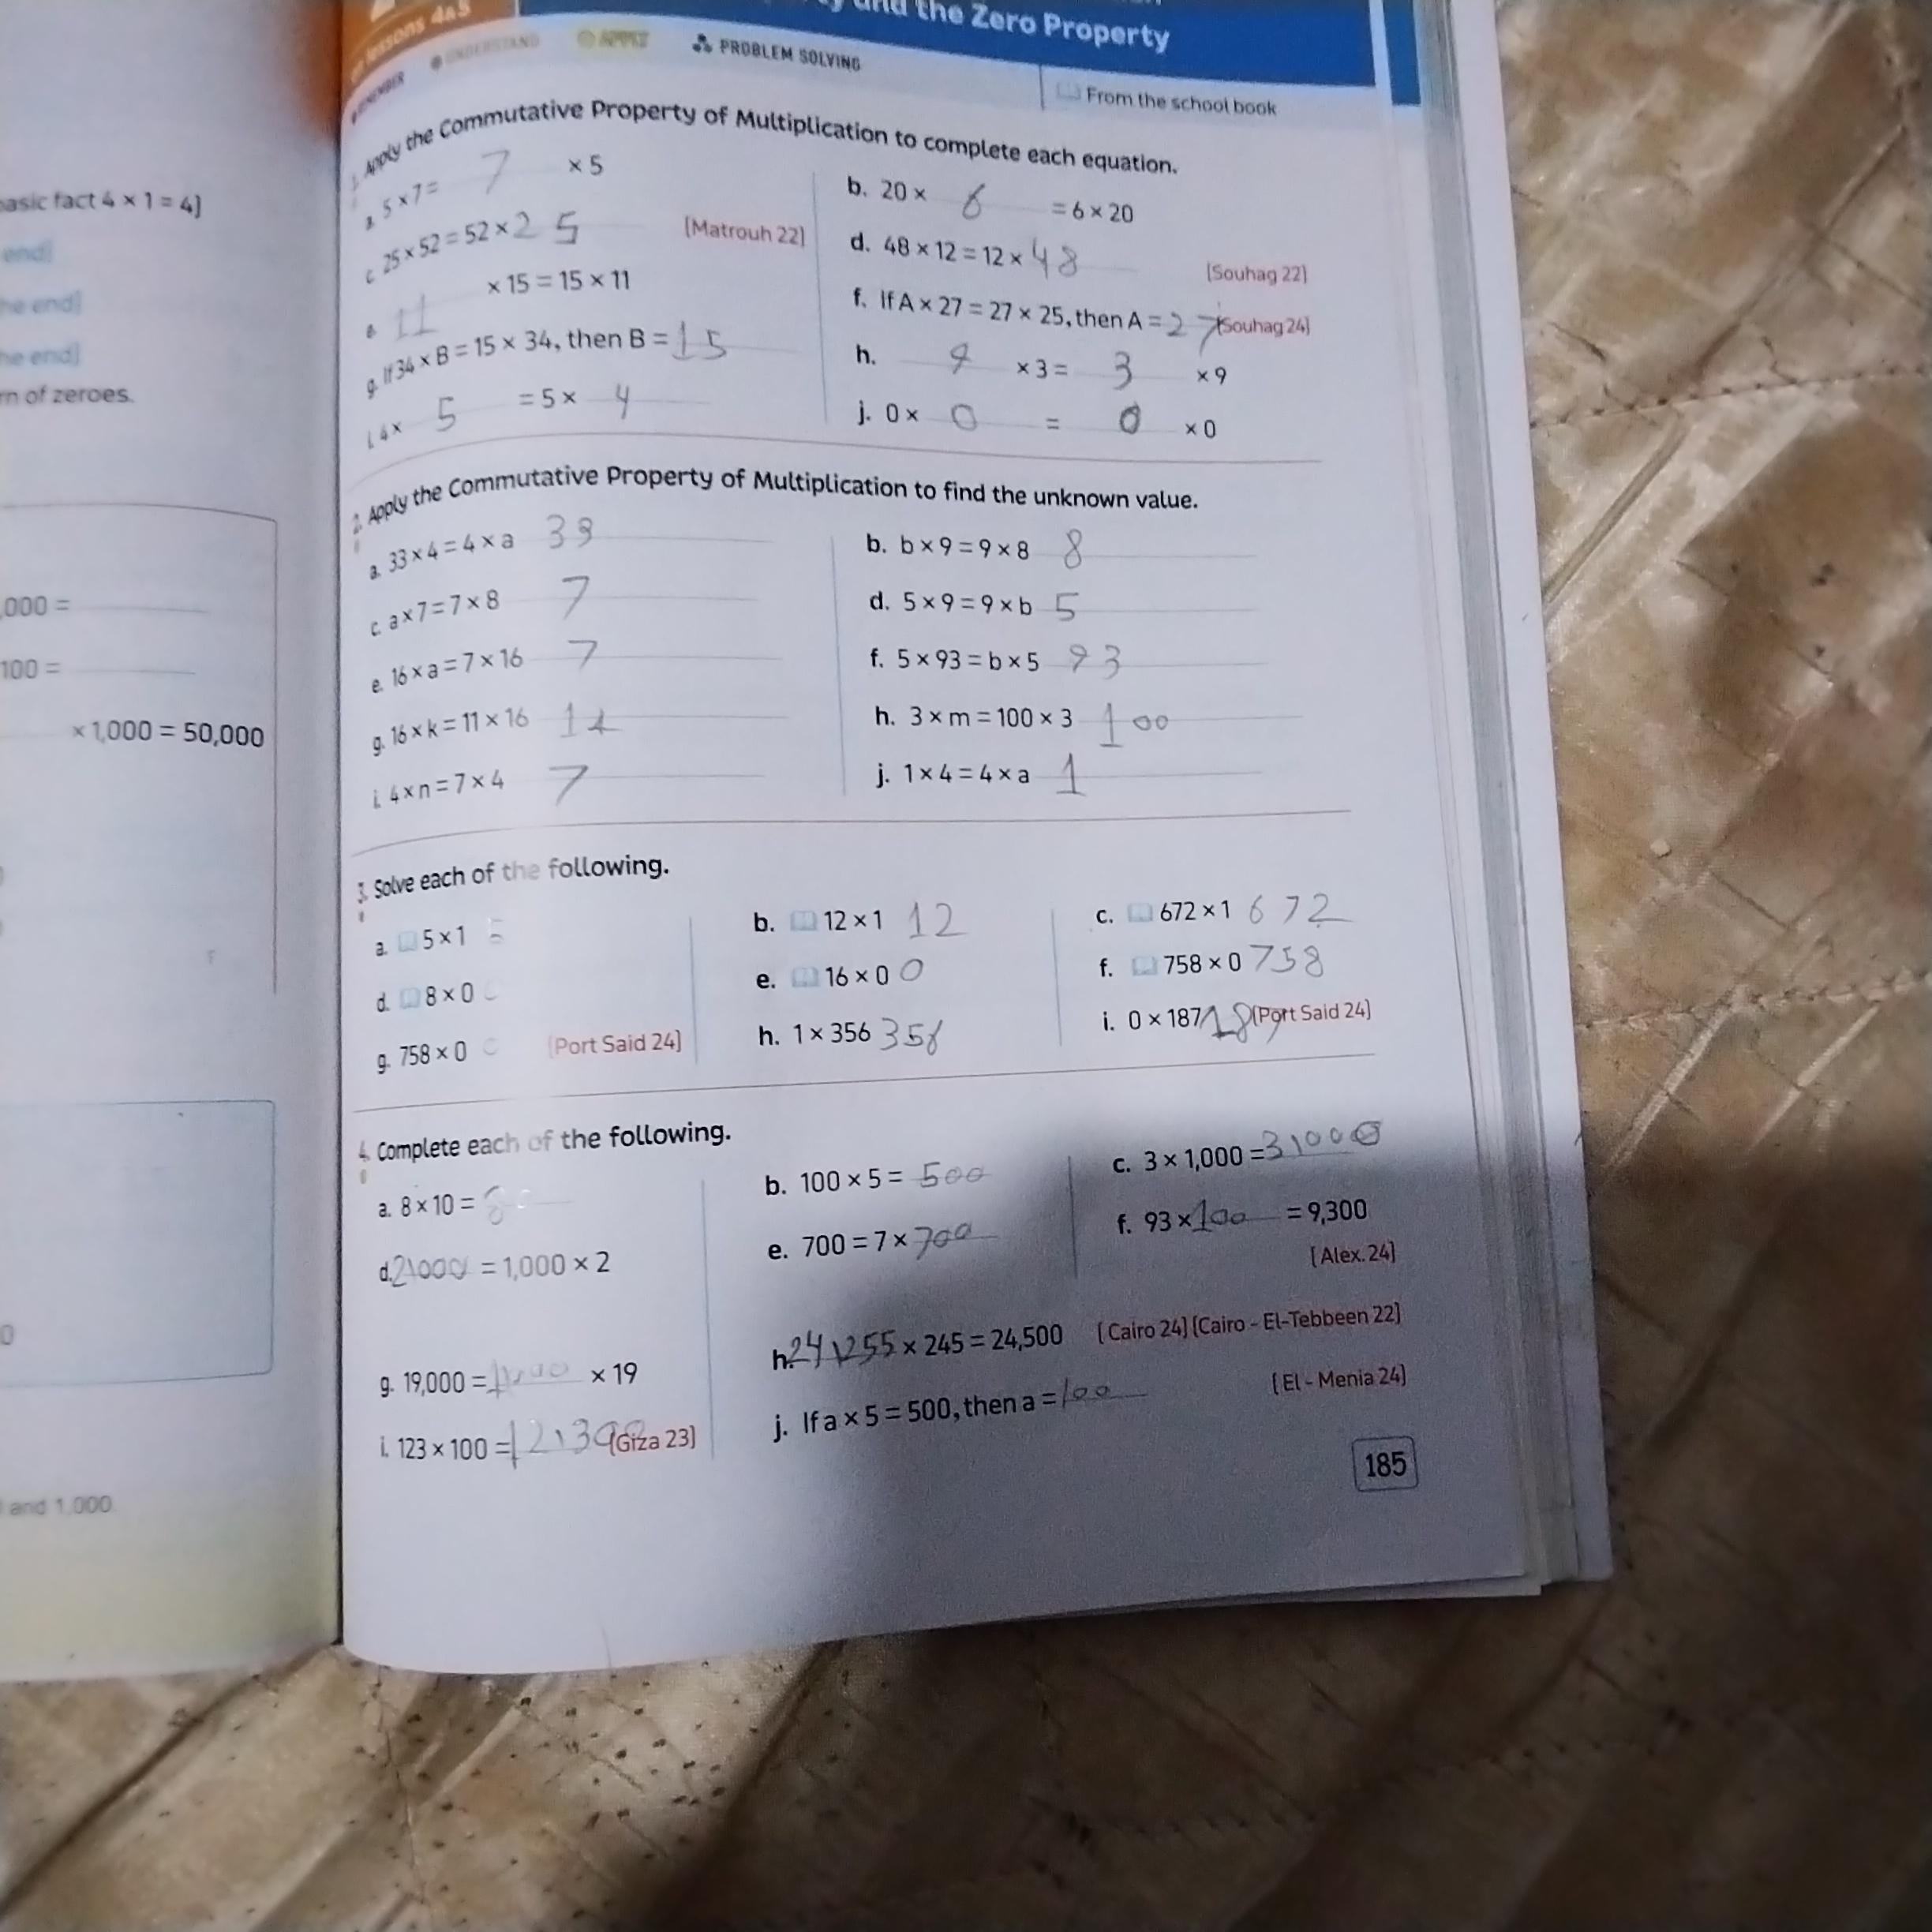 Lessons 4&5
and the Zero Property
REMEMBER UNDERSTAND APPLY PROBLEM SOLVING
From the school book
1. Apply the Commutative Property of Multiplication to complete each equation.
a. 5 × 7 = 7 × 5
b. 20 × 6 = 6 × 20
c. 25 × 52 = 52 × 25 [Matrouh 22]
d. 48 × 12 = 12 × 48 [Souhag 22]
e. 11 × 15 = 15 × 11
f. If A × 27 = 27 × 25, then A = 27 [Souhag 24]
g. If 34 × B = 15 × 34, then B = 15
h. 9 × 3 = 3 × 9
i. 4 × 5 = 5 × 4
j. 0 × 0 = 0 × 0
2. Apply the Commutative Property of Multiplication to find the unknown value.
a. 33 × 4 = 4 × a 33
b. b × 9 = 9 × 8 8
c. a × 7 = 7 × 8 7
d. 5 × 9 = 9 × b 5
e. 16 × a = 7 × 16 7
f. 5 × 93 = b × 5 93
g. 16 × k = 11 × 16 11
h. 3 × m = 100 × 3 100
i. 4 × n = 7 × 4 7
j. 1 × 4 = 4 × a 1
3. Solve each of the following.
a. 5 × 1 5
b. 12 × 1 12
c. 672 × 1 672
d. 8 × 0
e. 16 × 0 0
f. 758 × 0 758
g. 758 × 0 [Port Said 24]
h. 1 × 356 356
i. 0 × 187 187 [Port Said 24]
4. Complete each of the following.
a. 8 × 10 = 80
b. 100 × 5 = 500
c. 3 × 1,000 = 3,000
d. 2,000 = 1,000 × 2
e. 700 = 7 × 700
f. 93 × 100 = 9,300
[Alex. 24]
g. 19,000 = 1,000 × 19
h. 24,255 × 245 = 24,500 [Cairo 24] [Cairo - El-Tebbeen 22]
i. 123 × 100 = [Giza 23]
j. If a × 5 = 500, then a = 100 [El - Menia 24]
185
basic fact 4 × 1 = 4]
end]
he end]
he end]
rn of zeroes.
,000 =
100 =
× 1,000 = 50,000
0
and 1,000